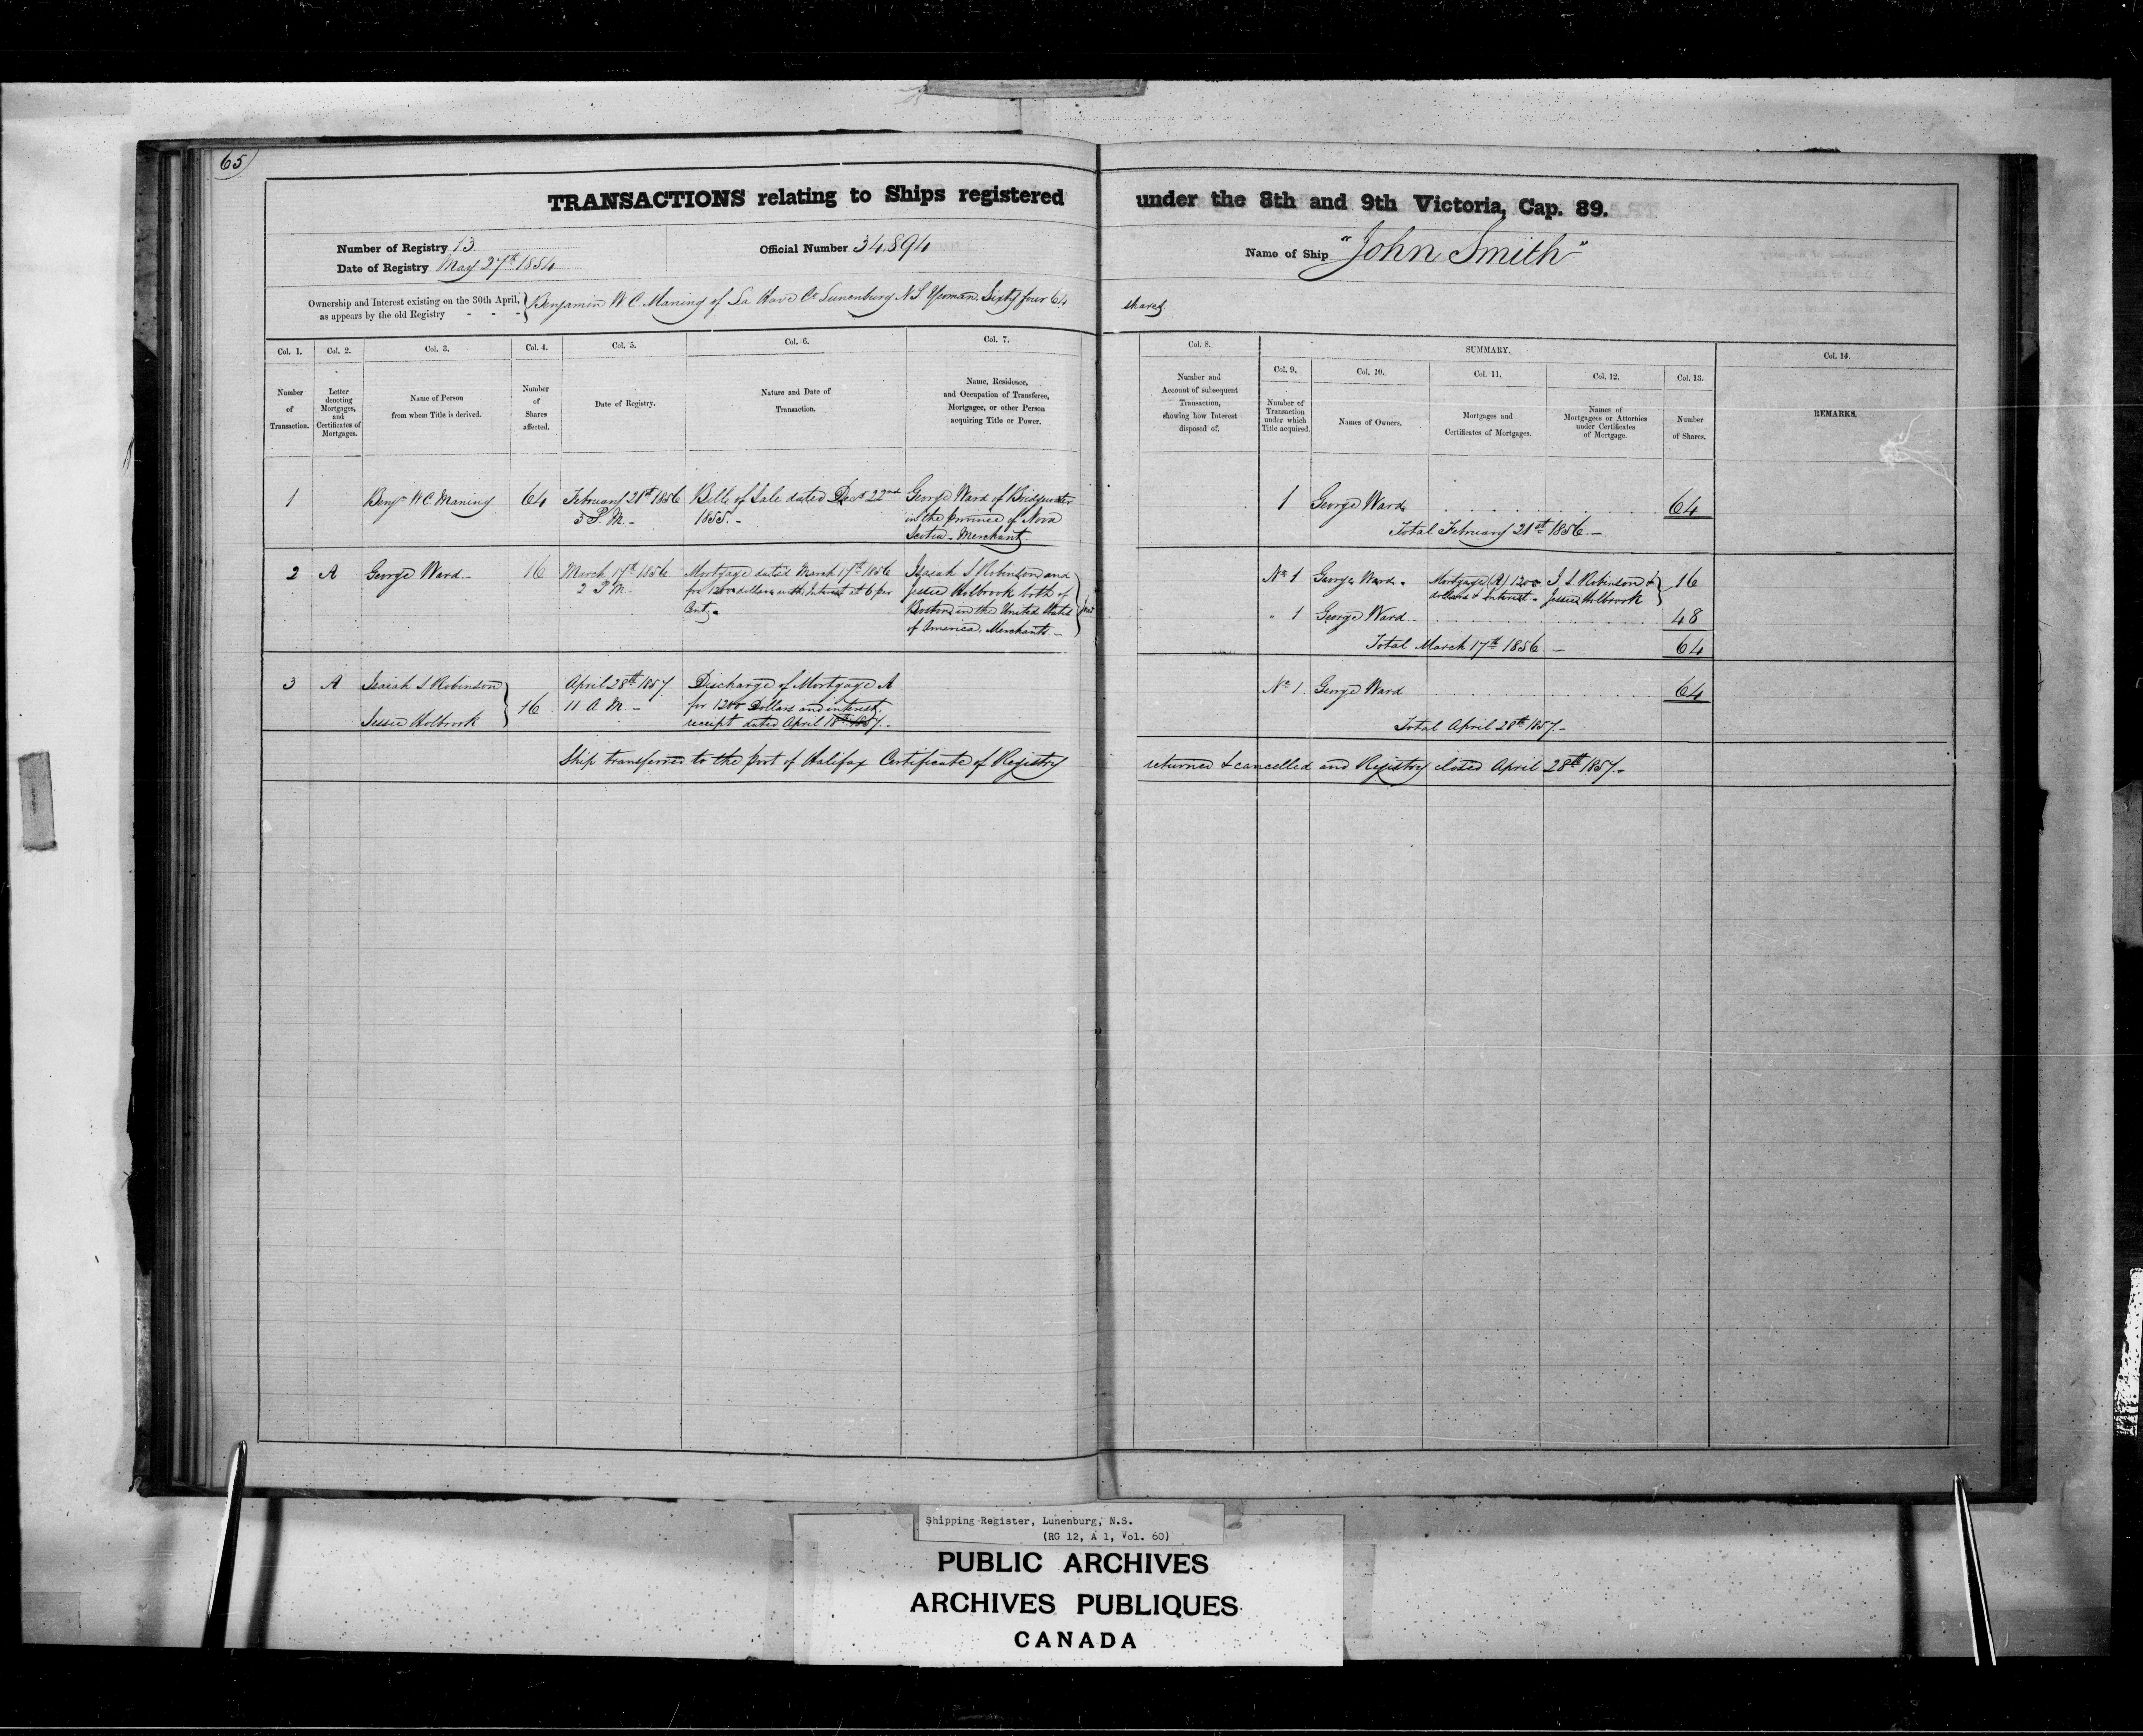 65
TRANSACTIONS relating to Ships registered under the 8th and 9th Victoria, Cap. 89.
Number of Registry 13.
Date of Registry May 27th 1854
Official Number 34,894
Name of Ship "John Smith"
Ownership and Interest existing on the 30th April, as appears by the old Registry - - -
Benjamin W C Maning of La Have Co Lunenburg N S Yeoman. Sixty four 64 shares
Col. 1.
Number of Transaction.
Col. 2.
Letter denoting Mortgages, and Certificates of Mortgages.
Col. 3.
Name of Person from whom Title is derived.
Col. 4.
Number of Shares affected.
Col. 5.
Date of Registry.
Col. 6.
Nature and Date of Transaction.
Col. 7.
Name, Residence, and Occupation of Transferee, Mortgagee, or other Person acquiring Title or Power.
Col. 8.
Number and Account of subsequent Transaction, showing how Interest disposed of.
SUMMARY.
Col. 9.
Number of Transaction under which Title acquired.
Col. 10.
Names of Owners.
Col. 11.
Mortgages and Certificates of Mortgages.
Col. 12.
Names of Mortgagees or Attornies under Certificates of Mortgage.
Col. 13.
Number of Shares.
Col. 14.
REMARKS.
1
Benjn W C Maning
64
February 21st 1856
5 P. M. -
Bill of Sale dated Decr 22nd
1855. -
George Ward of Bridgewater
in the province of Nova
Scotia - Merchant.
1 George Ward 64
Total February 21st 1856. -
2 A
George Ward -
16
March 17th 1856
2 P M -
Mortgage dated March 17th 1856
for 1200 dollars with Interest at 6 per
Cent.
Isaiah S Robinson and
Jessie Holbrook both of
Boston in the United States
of America, Merchants -
No 1 George Ward. Mortgage (A) 1200 I. S. Robinson &
dollars & Interest. Jessie Holbrook
16
" 1 George Ward 48
Total March 17th 1856. - 64
3 A
Isaiah S Robinson
Jessie Holbrook
16
April 28th 1857
11 A M -
Discharge of Mortgage A
for 1200 Dollars and interest.
receipt dated April 18th 1857. -
No 1 George Ward 64
Total April 28th 1857. -
Ship transferred to the port of Halifax Certificate of Registry returned & cancelled and Registry closed April 28th 1857. -
Shipping Register, Lunenburg, N.S.
(RG 12, A 1, Vol. 60)
PUBLIC ARCHIVES
ARCHIVES PUBLIQUES
CANADA